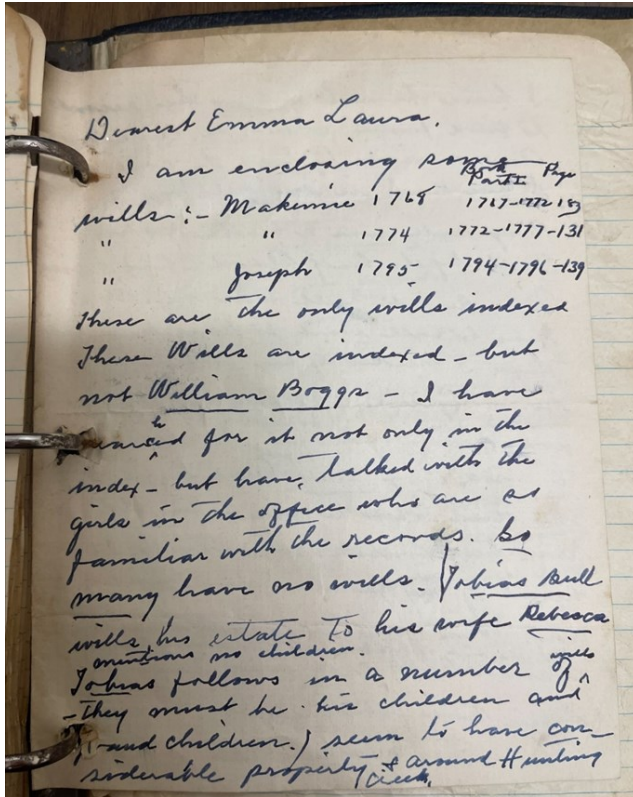 Dearest Emma Laura,
I am enclosing some Book Page
Part I
wills :- Makemie 1768 1767-1772-183
" " 1774 1772-1777-131
" Joseph 1795 1794-1796-139
These are the only wills indexed
These Wills are indexed - but
not William Boggs - I have
searched for it not only in the
index - but have talked with the
girls in the office who are so
familiar with the records. So
many have no wills. (Tobias Bull
wills his estate to his wife Rebecca
mentions no children.
Tobias follows in a number of wills
- They must be his children and
grandchildren.) seem to have con-
siderable property & around Hunting
Creek.